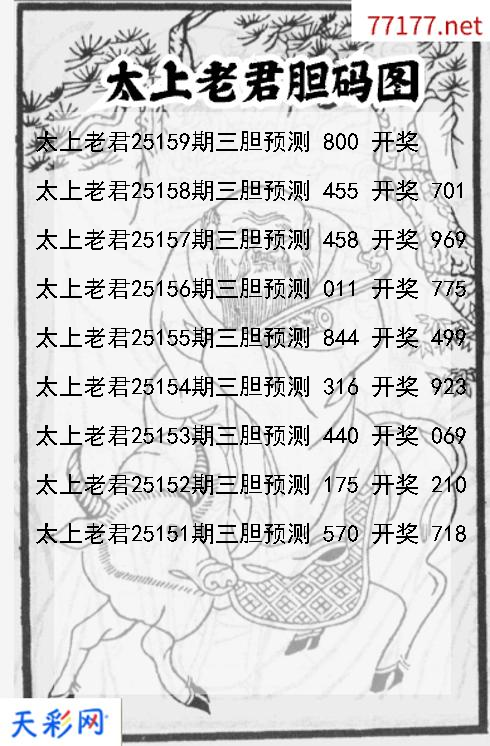 77177.net
太上老君胆码图
太上老君25159期三胆预测 800 开奖
太上老君25158期三胆预测 455 开奖 701
太上老君25157期三胆预测 458 开奖 969
太上老君25156期三胆预测 011 开奖 775
太上老君25155期三胆预测 844 开奖 499
太上老君25154期三胆预测 316 开奖 923
太上老君25153期三胆预测 440 开奖 069
太上老君25152期三胆预测 175 开奖 210
太上老君25151期三胆预测 570 开奖 718
天彩网